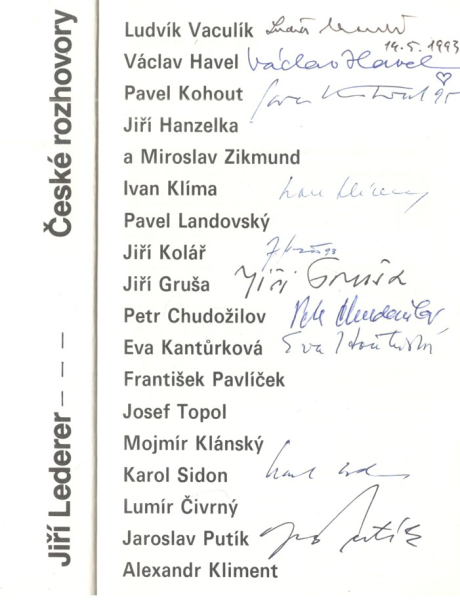 Jiří Lederer – – – České rozhovory
Ludvík Vaculík
19.5.1993
Václav Havel Václav Havel
Pavel Kohout 95
Jiří Hanzelka
a Miroslav Zikmund
Ivan Klíma
Pavel Landovský
Jiří Kolář 93
Jiří Gruša Jiří Gruša
Petr Chudožilov Petr Chudožilov
Eva Kantůrková Eva Kantůrková
František Pavlíček
Josef Topol
Mojmír Klánský
Karol Sidon
Lumír Čivrný
Jaroslav Putík Putík
Alexandr Kliment